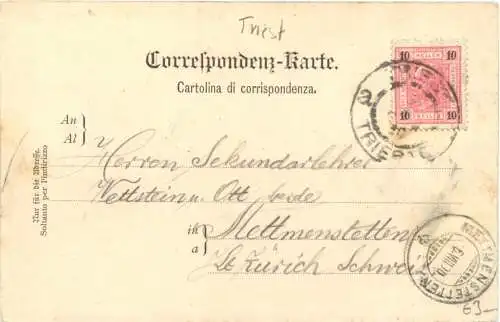 Triest
Correspondenz-Karte.
Cartolina di corrispondenza.
10 HELLER 10
10 10
TRIEST
An
Al
Nur für die Adresse.
Soltanto per l'indirizzo
Herren Sekundarlehrer
Wettstein u. Ott beide
in
a
Mettmenstetten
Kt. Zürich Schweiz
METTMENSTETTEN
63-